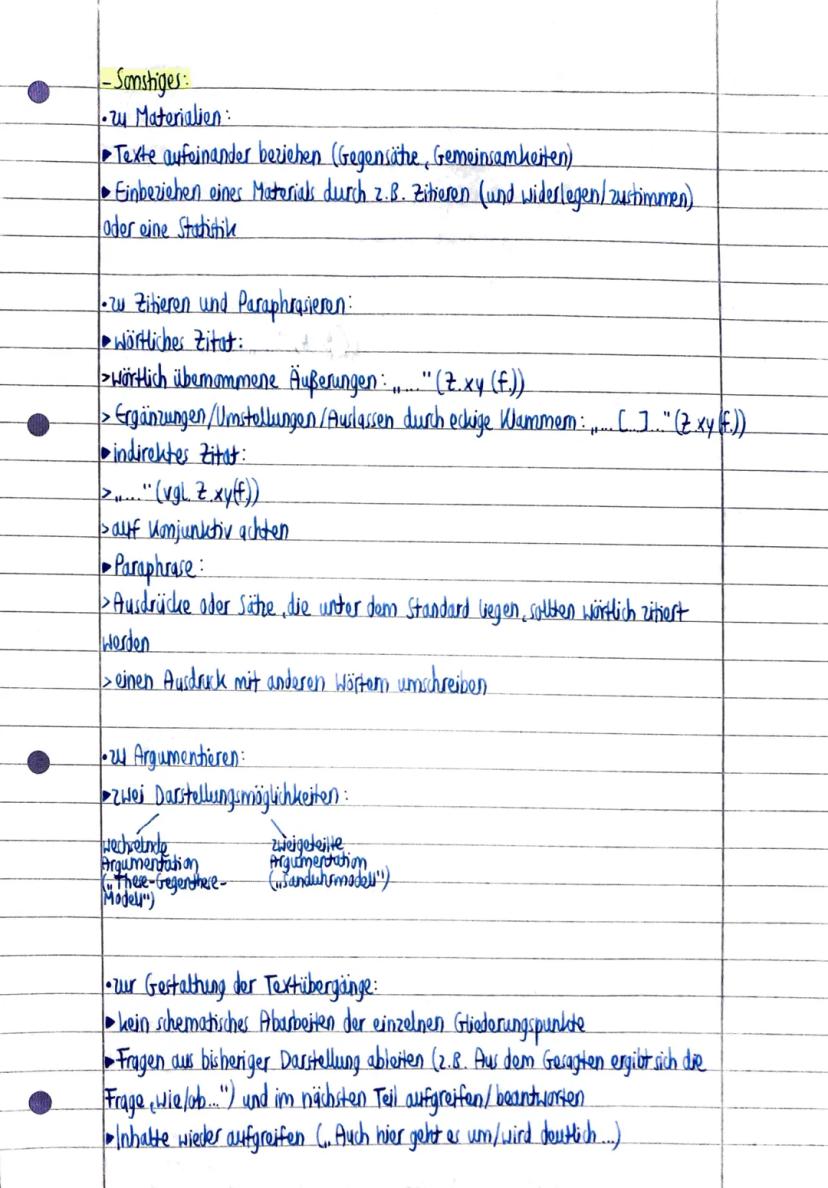 - Sonstiges:
• zu Materialien:
▸ Texte aufeinander beziehen (Gegensätze, Gemeinsamkeiten)
▸ Einbeziehen eines Materials durch z.B. Zitieren (und widerlegen/zustimmen)
oder eine Statistik
• zu Zitieren und Paraphrasieren:
▸ wörtliches Zitat:
> wörtlich übernommene Äußerungen: „..." (Z. xy (f.))
> Ergänzungen/Umstellungen/Auslassen durch eckige Klammern: „... [...]..." (Z. xy (f.))
▸ indirektes Zitat:
> „..." (vgl. Z. xy(f.))
> auf Konjunktiv achten
▸ Paraphrase:
> Ausdrücke oder Sätze, die unter dem Standard liegen, sollten wörtlich zitiert
werden
> einen Ausdruck mit anderen Wörtern umschreiben
• zu Argumentieren:
▸ zwei Darstellungsmöglichkeiten:
wechselnde
Argumentation
(„These-Gegenthese-
Modell")
zweigeteilte
Argumentation
(„Sanduhrmodell")
• zur Gestaltung der Textübergänge:
▸ kein schematisches Abarbeiten der einzelnen Gliederungspunkte
▸ Fragen aus bisheriger Darstellung ableiten (z.B. Aus dem Gesagten ergibt sich die
Frage, wie/ob...") und im nächsten Teil aufgreifen/beantworten
▸ Inhalte wieder aufgreifen („Auch hier geht es um/wird deutlich...)